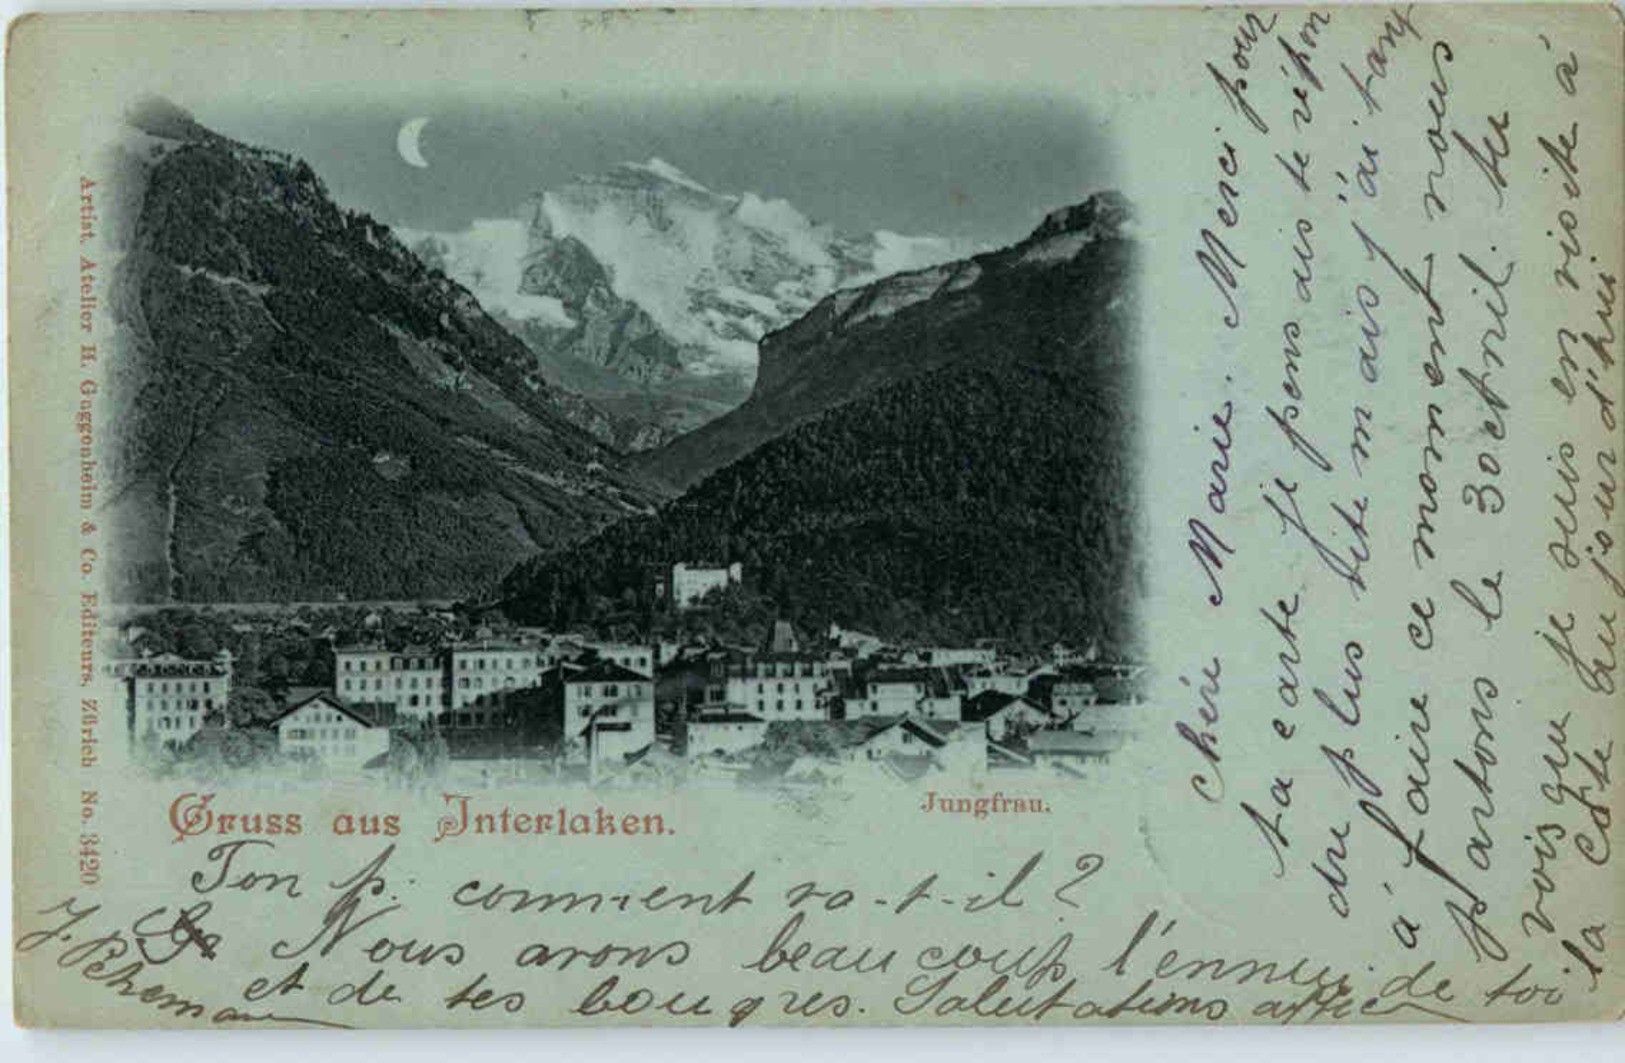 Artist. Atelier H. Guggenheim & Co. Editeurs, Zürich No. 3420
Gruss aus Interlaken.
Jungfrau.
Chère Marie. Merci pour
ta carte. Je pensais te répon
dre plus vite mais j'ai tant
à faire ce moment nous
partons le 30 ctril. tu
vois que je suis en visite à
la côte aujourd'hui
Ton p. comment va-t-il ?
Nous avons beaucoup l'ennui de toi
et de tes bougres. Salutations affec
J.